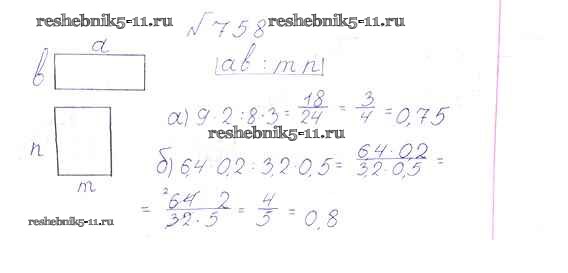 reshebnik5-11.ru
reshebnik5-11.ru
№ 758
a
b
ab : mn
n
m
а) 9·2:8·3 = 18/24 = 3/4 = 0,75
reshebnik5-11.ru
б) 6,4·0,2 : 3,2·0,5 = 6,4·0,2/3,2·0,5 =
= ²64 2/32·5 = 4/5 = 0,8
reshebnik5-11.ru